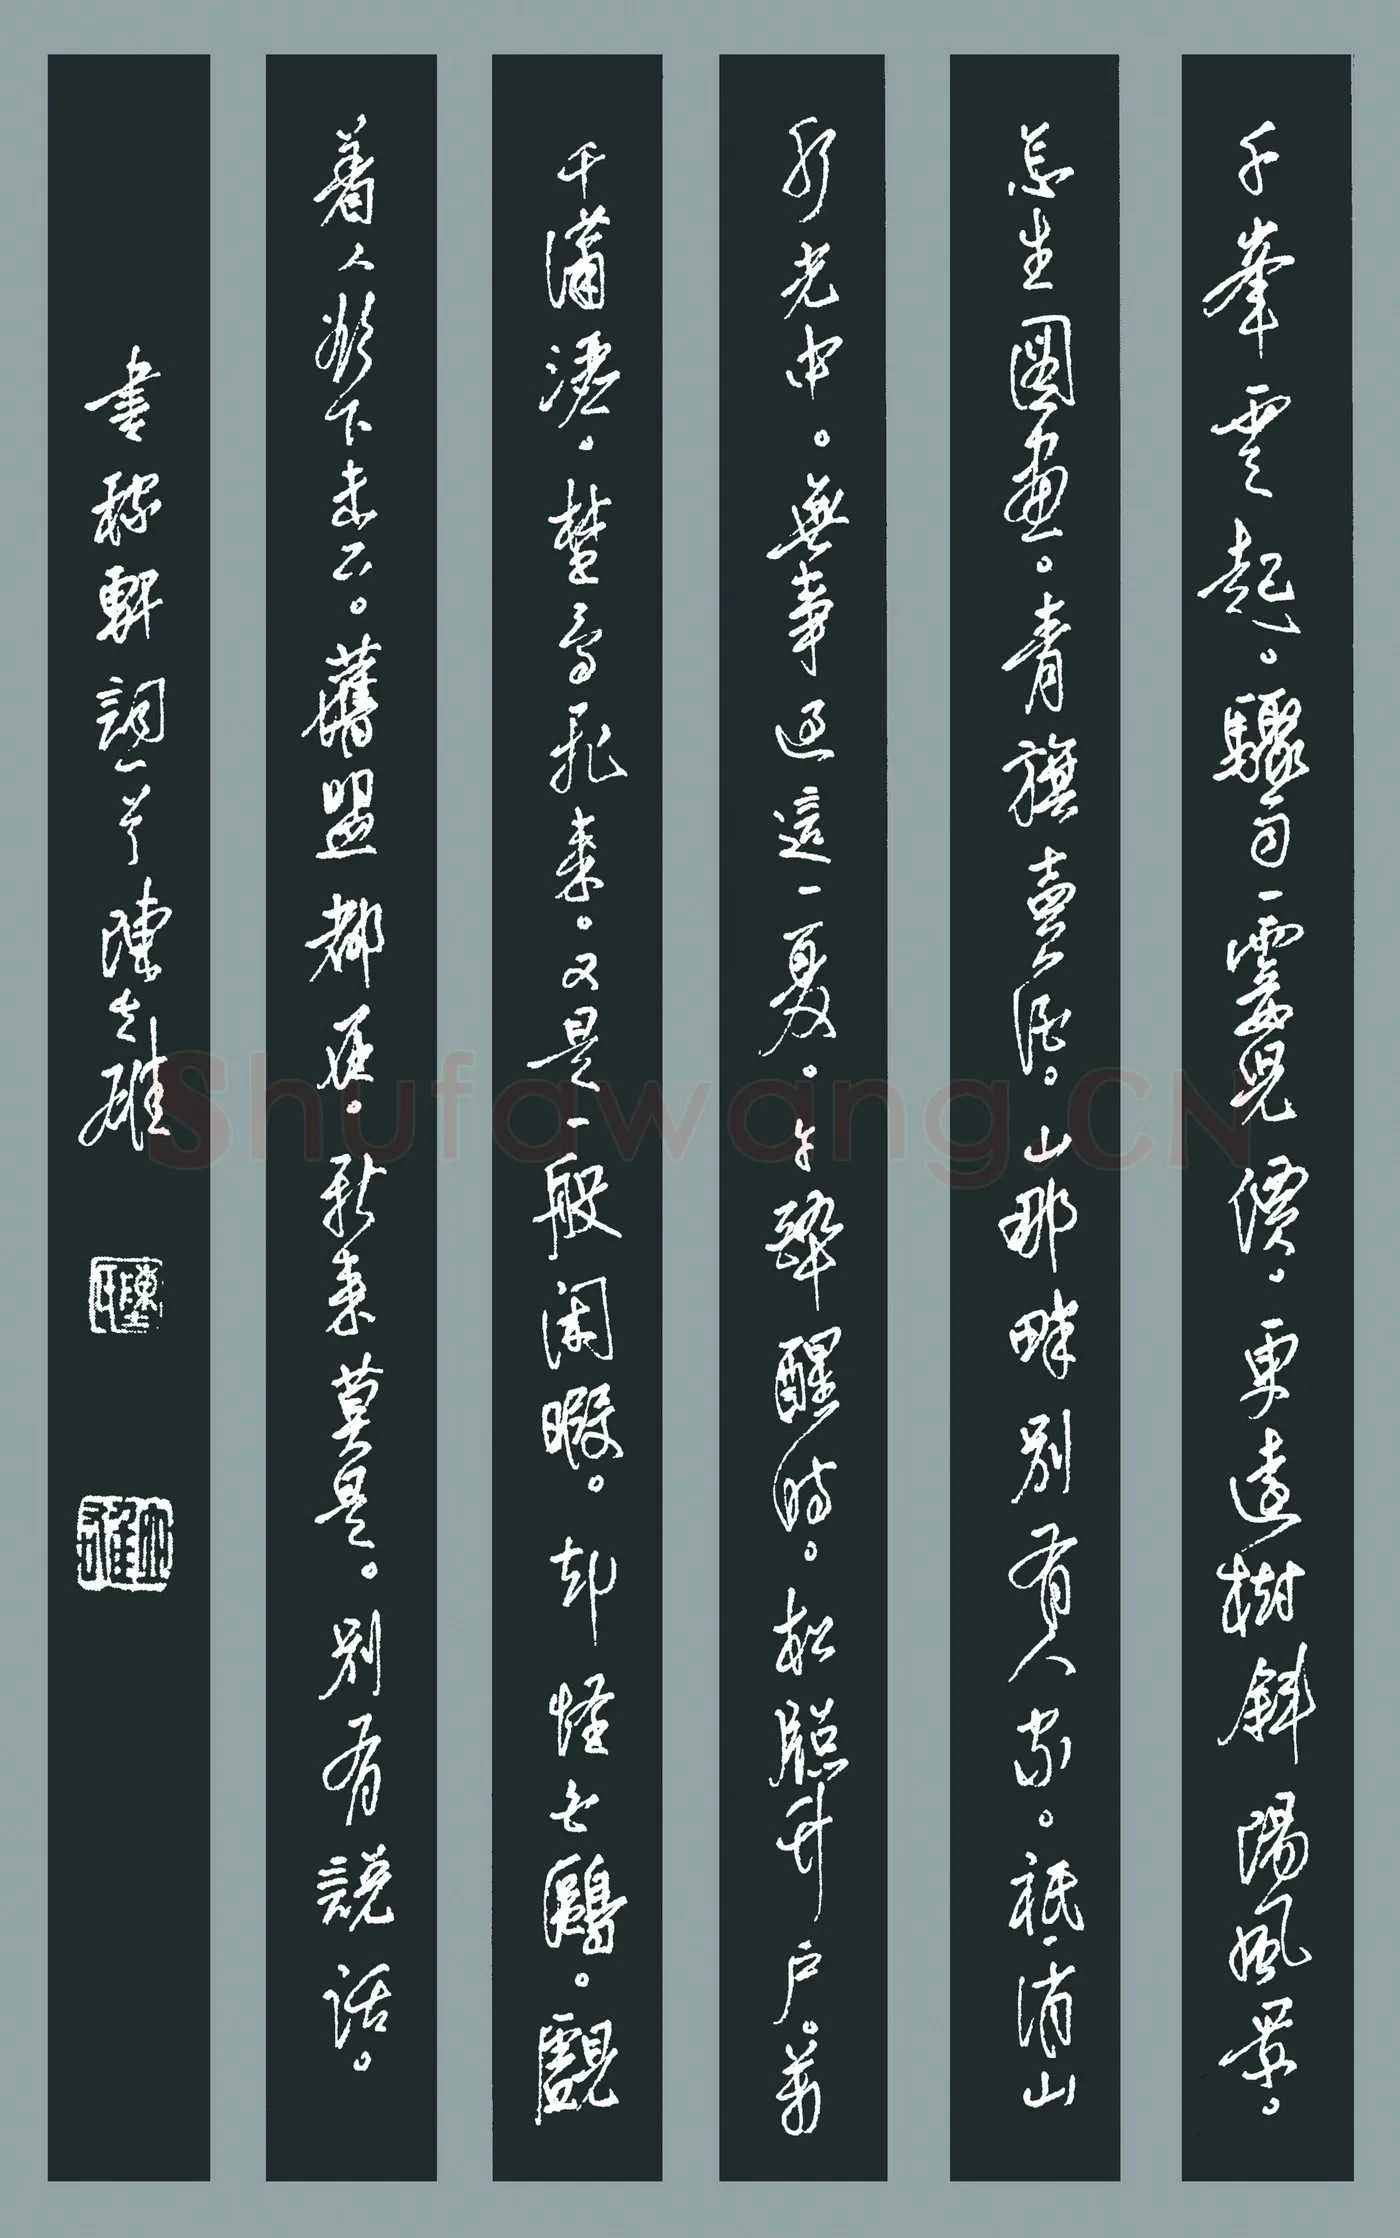 千峯雲起。驟雨一霎兒價。更遠樹斜陽風景。
怎生圖畫。青旗賣酒。山那畔別有人家。祇消山
水光中。無事過這一夏。午醉醒時。松牕竹戶。萬
千瀟灑。埜鳥飛來。又是一般閑暇。却怪白鷗。覷
着人欲下未下。舊盟都在。新來莫是。別有說話。
書稼軒詞一首 陳立雄
Shufawang.CN